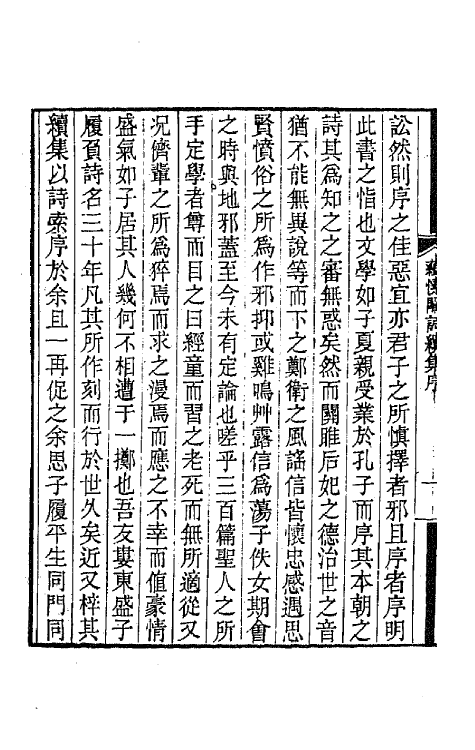 訟然則序之佳惡宜亦君子之所慎擇者邪且序者序明
此書之恉也文學如子夏親受業於孔子而序其本朝之
詩其爲知之之審無惑矣然而關雎后妃之德治世之音
猶不能無異說等而下之鄭衛之風謠信皆懷忠感遇思
賢憤俗之所爲作邪抑或雞鳴艸露信爲蕩子佚女期會
之時與地邪蓋至今未有定論也嗟乎三百篇聖人之所
手定學者尊而目之曰經童而習之老死而無所適從又
況儕輩之所爲猝焉而求之漫焉而應之不幸而值豪情
盛氣如子居其人幾何不相遭于一擲也吾友婁東盛子
履頁詩名三十年凡其所作刻而行於世久矣近又梓其
續集以詩索序於余且一再促之余思子履平生同門同
詩續集序